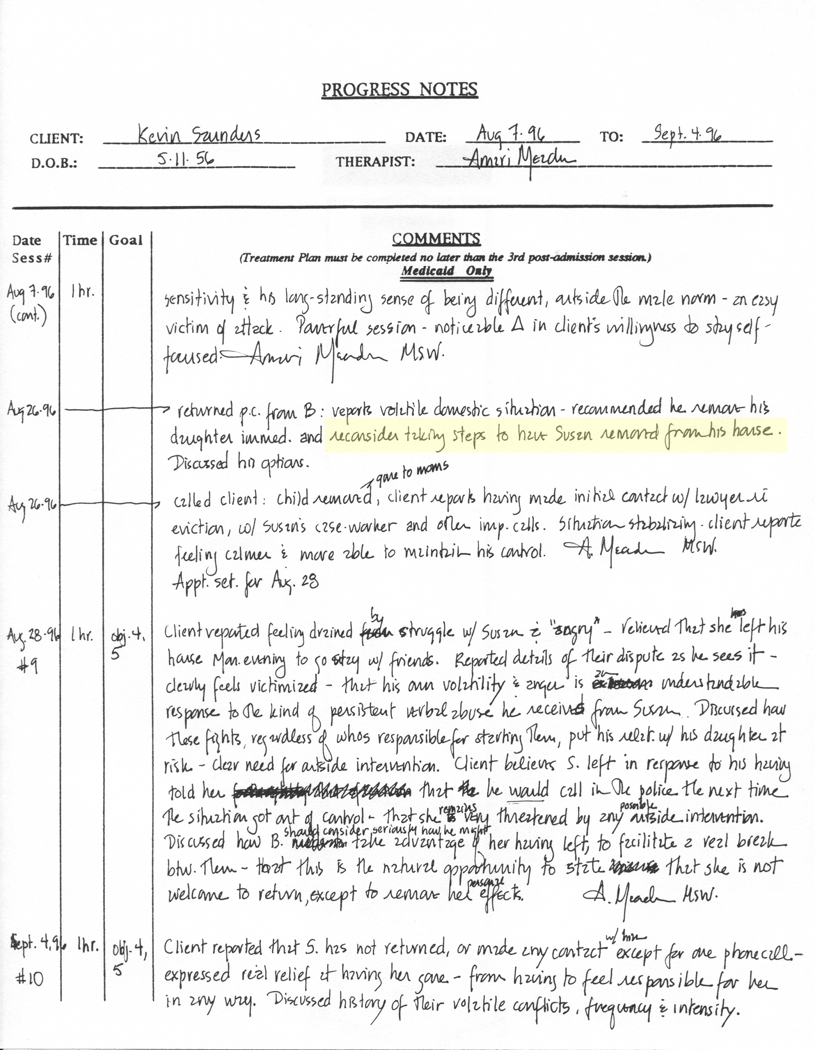 PROGRESS NOTES
CLIENT: Kevin Saunders DATE: Aug 7.96 TO: Sept. 4.96
D.O.B.: 5.11.56 THERAPIST: Amari Meader
Date Time Goal COMMENTS
Sess# (Treatment Plan must be completed no later than the 3rd post-admission session.)
Medicaid Only
Aug 7.96 1 hr. sensitivity & his long-standing sense of being different, outside the male norm - an easy
(cont.) victim of attack. Powerful session - noticeable Δ in client's willingness to stay self-
focused. Amari Meader MSW.
Aug 26.96 returned p.c. from B: reports volatile domestic situation - recommended he remove his
daughter immed. and reconsider taking steps to have Susan removed from his house.
Discussed his options.
gone to moms
Aug 26.96 called client: child removed, client reports having made initial contact w/ lawyer re
eviction, w/ Susan's case-worker and other imp. calls. Situation stabilizing. client reports
feeling calmer & more able to maintain his control. A. Meader MSW.
Appt. set for Aug. 28
Aug. 28.96 1 hr. obj. 4, Client reported feeling drained by struggle w/ Susan & "angry" - relieved that she has left his
#9 5 house Mon. evening to go stay w/ friends. Reported details of their dispute as he sees it -
clearly feels victimized - that his own volatility & anger is an understandable
response to the kind of persistent verbal abuse he receives from Susan. Discussed how
these fights, regardless of whos responsible for starting them, put his relat. w/ his daughter at
risk - clear need for outside intervention. Client believes S. left in response to his having
told her that he would call in the police the next time
the situation got out of control - that she remains very threatened by any possible outside intervention.
Discussed how B. should consider seriously how he might take advantage of her having left, to facilitate a real break
btw. them - that this is the natural opportunity to state that she is not
welcome to return, except to remove her personal effects. A. Meader MSW.
Sept. 4.96 1 hr. obj. 4, Client reported that S. has not returned, or made any contact w/ him except for one phone call -
#10 5 expressed real relief at having her gone - from having to feel responsible for her
in any way. Discussed history of their volatile conflicts, frequency & intensity.